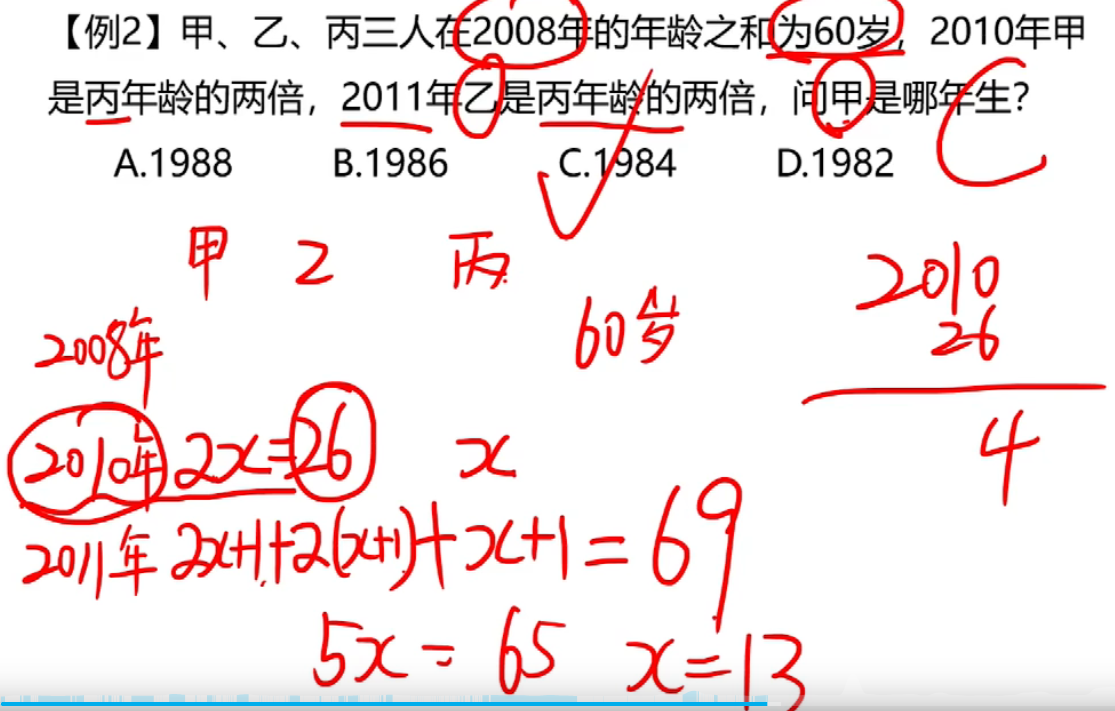 【例2】甲、乙、丙三人在2008年的年龄之和为60岁，2010年甲
是丙年龄的两倍，2011年乙是丙年龄的两倍，问甲是哪年生？
A.1988 B.1986 C.1984 D.1982
C
甲 乙 丙
2010
26
4
2008年 60岁
2010年 2x=26 x
2011年 2x+1+2(x+1)+x+1=69
5x=65 x=13